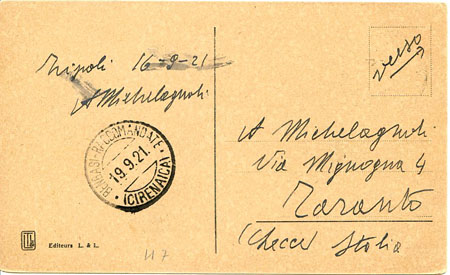 Tripoli 16-9-21
A Michelagnoli
BENGASI-RACCOMANDATE
19.9.21.
(CIRENAICA)
Editeurs L. & L.
117
verso
A Michelagnoli
Via Mignogna 4
Taranto
(Lecce) Italia